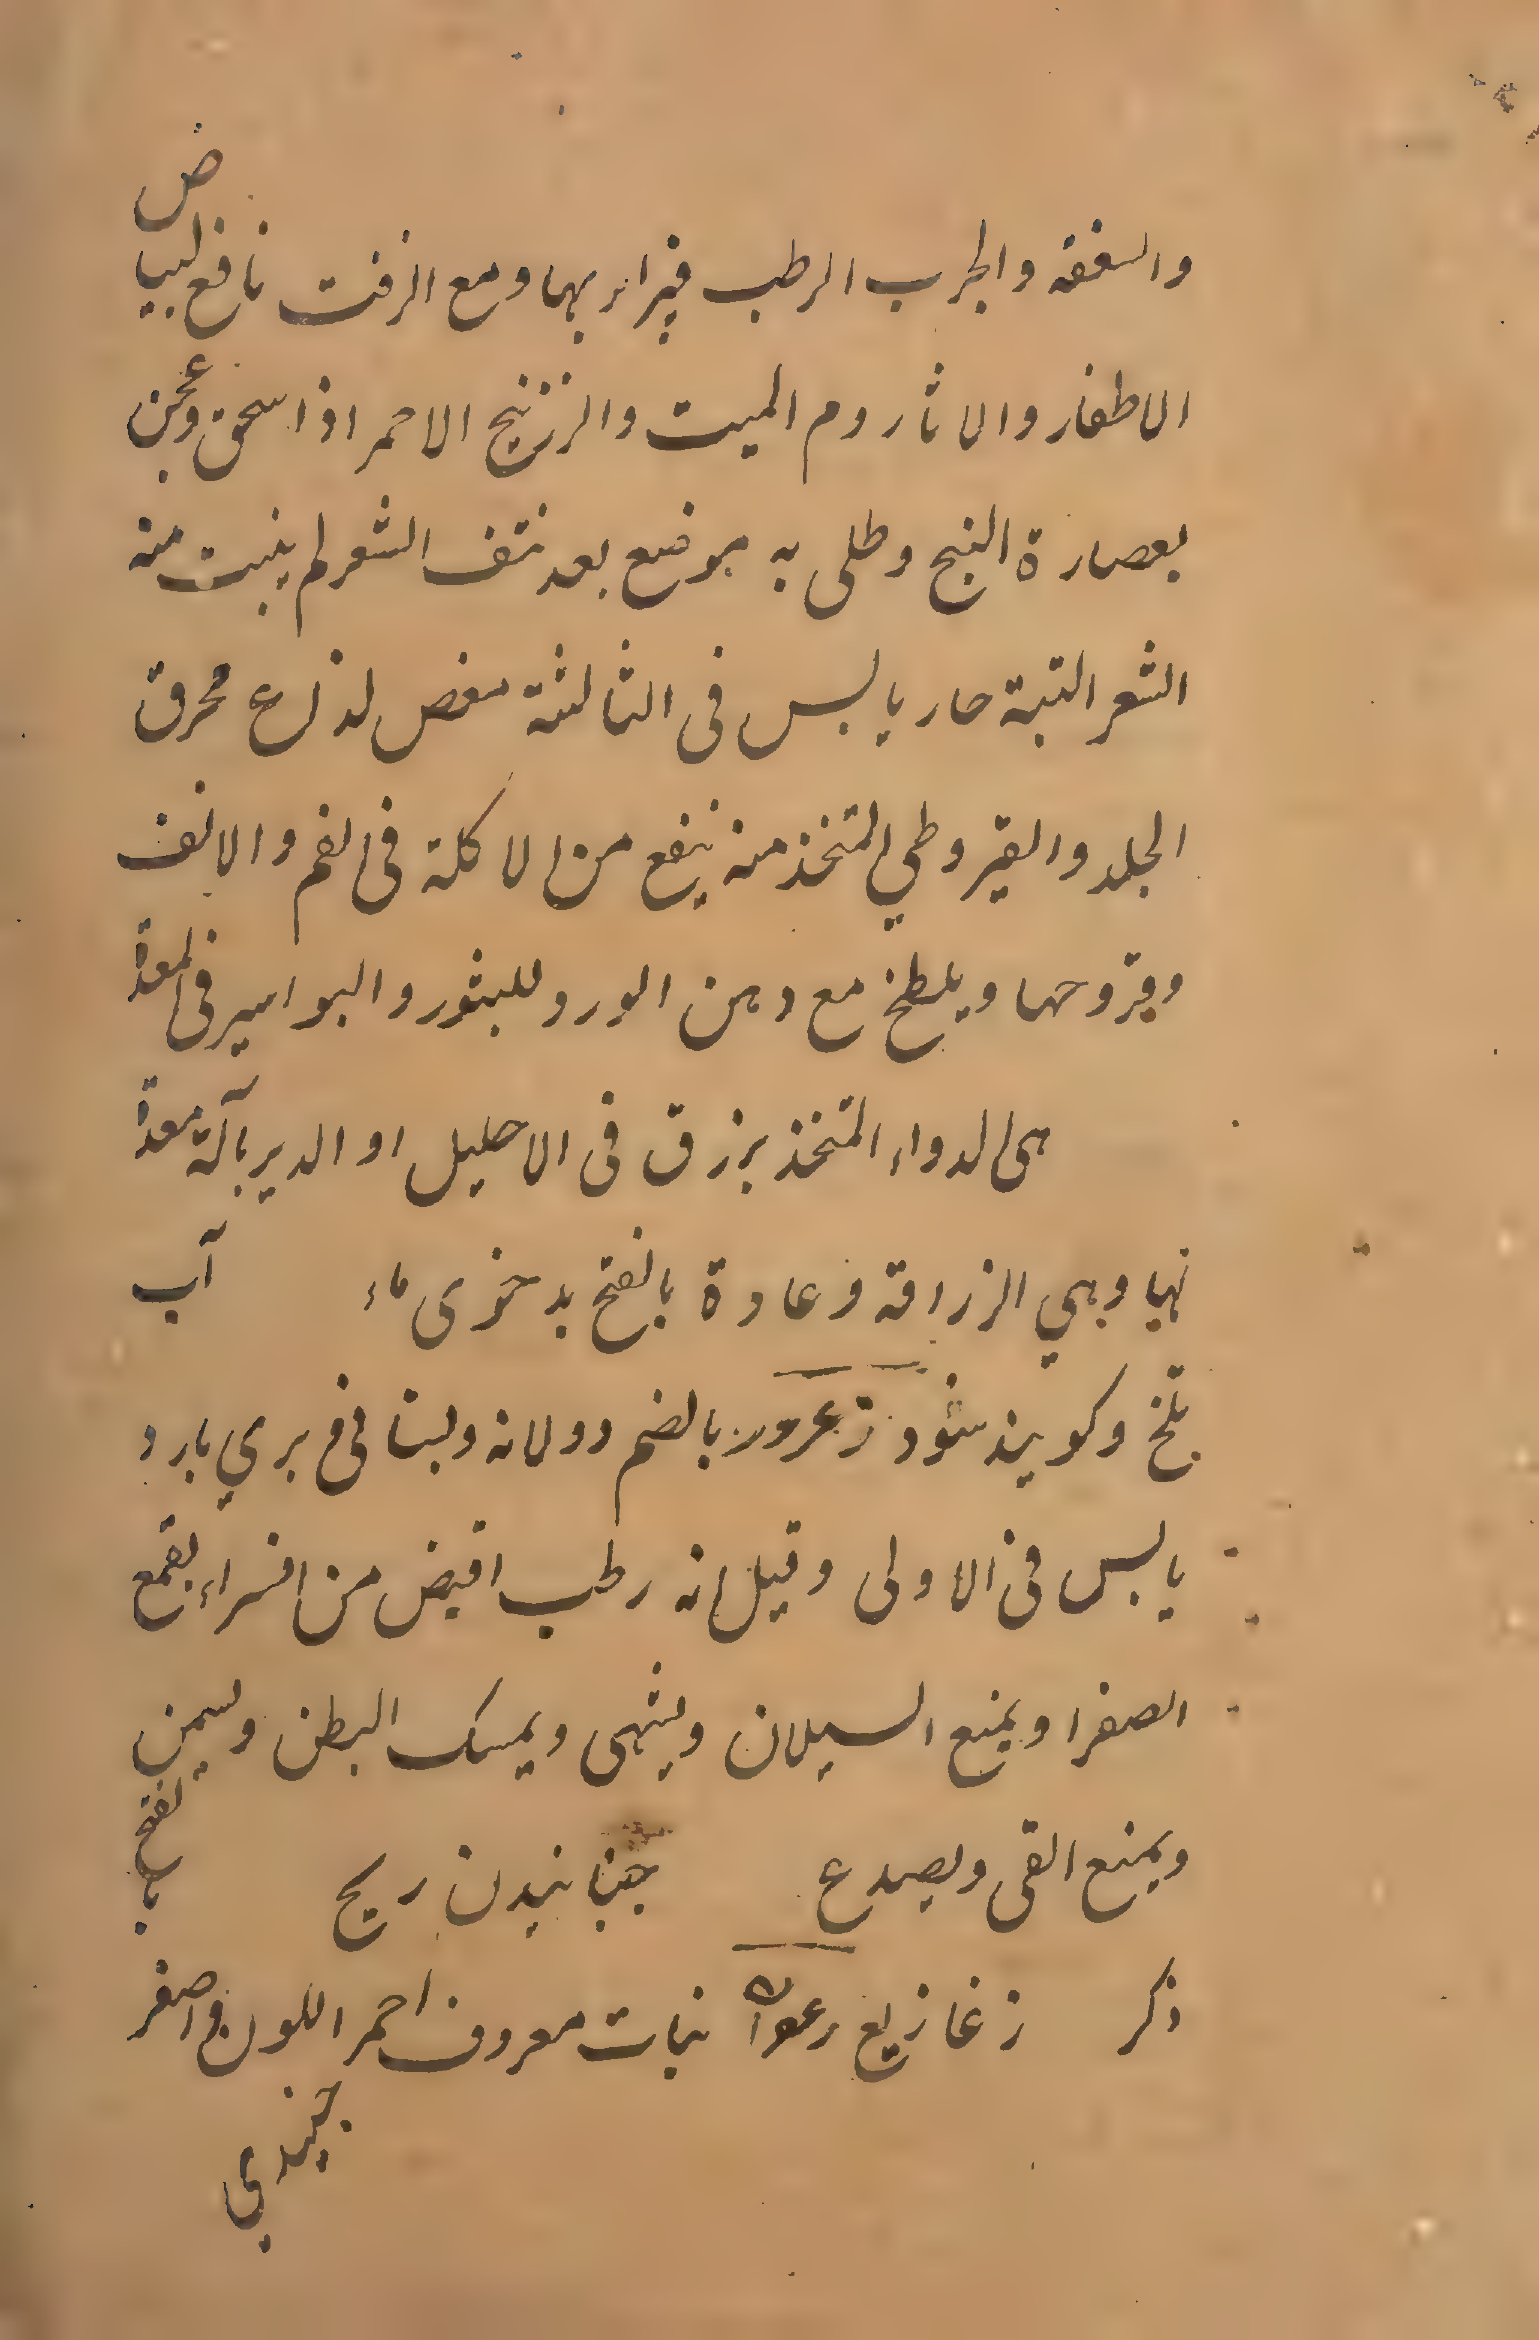 والسعفه والجرب الرطب فيراء بهما ومع الزفت نافع لبياض
الاظفار والاثار وم الميت والزرنيخ الاحمر اذا سحق وعجن
بعصارة البنج وطلى به موضع بعد نتف الشعر لم ينبت منه
الشعر البتة حار يابس فى الثالثة معفص لذاع محرق
الجلد والقيروطي المتخذ منه ينفع من الاكلة فى الفم والانف
وقروحها ويلطخ مع دهن الورد للبثور والبواسير فى المعدة
هى الدواء المتخذ يزرق فى الاحليل او الدبر بآلة معدة
لها وهي الزراقة وعادة بالفتح بدخوى ماء آب
تلخ وكويند شود زعرور بالضم دولانه وبستانى برى بارد
يابس فى الاولى وقيل انه رطب اقبض من اقسراء يقمع
الصفرا ويمنع السيلان ويشهى ويمسك البطن ويسمن
ويمنع القى ويصدع جنبانيدن ريح بالفتح
ذكر زغازيع نبات معروف احمر اللون واصفر